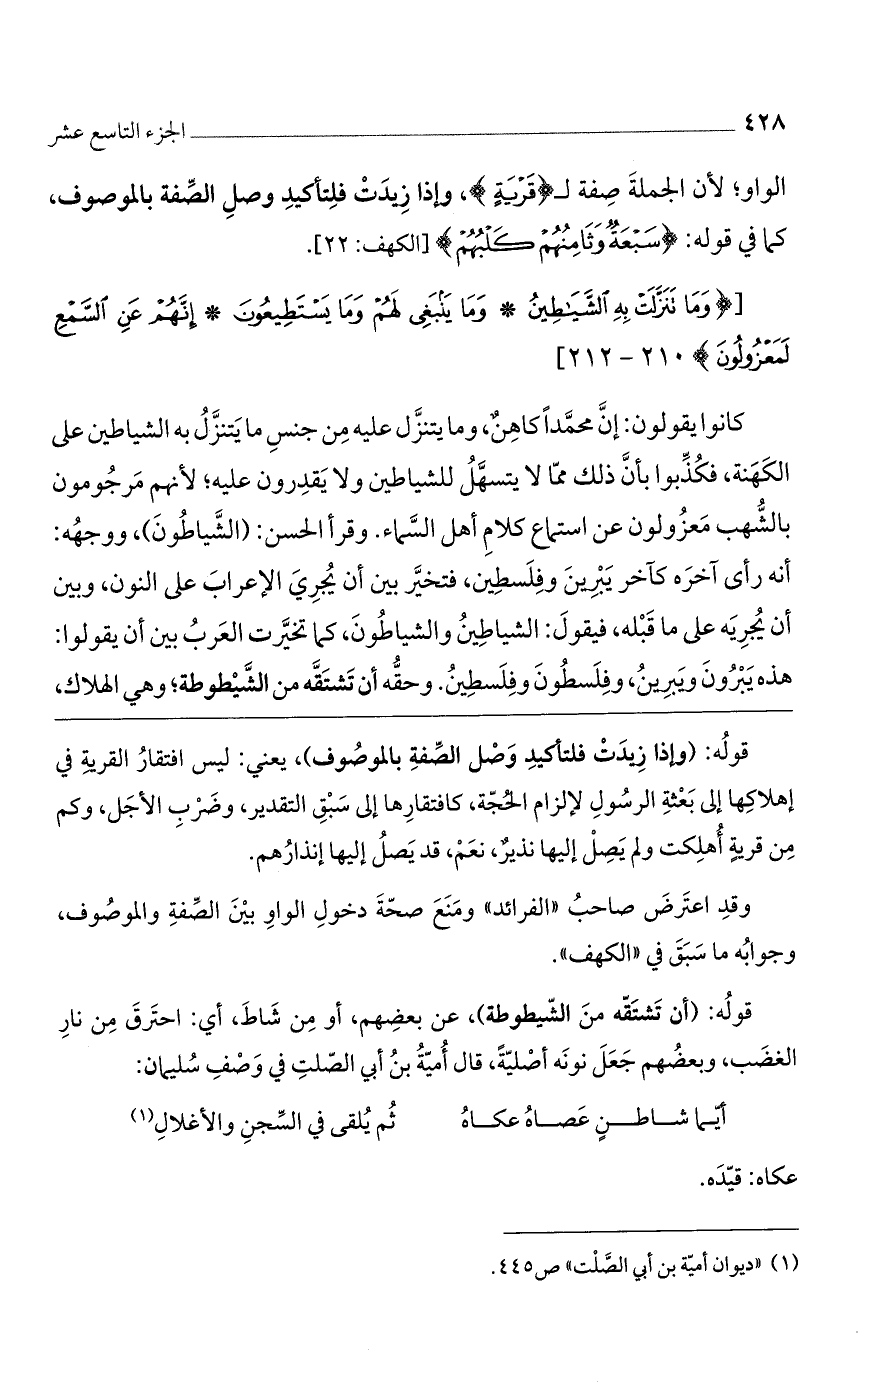 ٤٢٨ ــــــــــــــــــــ الجزء التاسع عشر
الواو؛ لأن الجملةَ صِفة لـ﴿قَرْيَةٍ﴾، وإذا زِيدَتْ فلِتأكيدِ وصلِ الصِّفة بالموصوف،
كما في قوله: ﴿سَبْعَةٌ وَثَامِنُهُمْ كَلْبُهُمْ﴾ [الكهف: ٢٢].
[﴿وَمَا تَنَزَّلَتْ بِهِ ٱلشَّيَٰطِينُ * وَمَا يَنۢبَغِى لَهُمْ وَمَا يَسْتَطِيعُونَ * إِنَّهُمْ عَنِ ٱلسَّمْعِ
لَمَعْزُولُونَ﴾ ٢١٠ – ٢١٢]
كانوا يقولون: إنَّ محمَّداً كاهنٌ، وما يتنزَّل عليه مِن جنسِ ما يَتنزَّلُ به الشياطين على
الكَهَنة، فكُذِّبوا بأنَّ ذلك ممّا لا يتسهَّلُ للشياطين ولا يَقدِرون عليه؛ لأنهم مَرجُومون
بالشُّهب مَعزُولون عن استماع كلامِ أهل السَّماء. وقرأ الحسن: (الشَّياطُونَ)، ووجهُه:
أنه رأى آخرَه كآخر يَبْرِينَ وفِلَسطِين، فتخيَّر بين أن يُجرِيَ الإعرابَ على النون، وبين
أن يُجرِيَه على ما قَبْله، فيقولَ: الشياطِينُ والشياطُونَ، كما تخيَّرت العَربُ بين أن يقولوا:
هذه يَبْرُونَ ويَبرِينُ، وفِلَسطُونَ وفِلَسطِينُ. وحقُّه أن تَشتَقَّه من الشَّيْطوطة؛ وهي الهلاك،
قولُه: (وإذا زِيدَتْ فلتأكيدِ وَصْل الصِّفةِ بالموصُوف)، يعني: ليس افتقارُ القريةِ في
إهلاكِها إلى بَعْثةِ الرسُولِ لإلزام الحُجّة، كافتقارِها إلى سَبْقِ التقدير، وضَرْبِ الأجَل، وكم
مِن قريةٍ أُهلِكت ولم يَصِلْ إليها نذيرٌ، نعَمْ، قد يَصلُ إليها إنذارُهم.
وقدِ اعتَرضَ صاحبُ «الفرائد» ومَنَعَ صحّةَ دخولِ الواوِ بيْنَ الصِّفةِ والموصُوف،
وجوابُه ما سَبَقَ في «الكهف».
قولُه: (أن تَشتَقّه منَ الشّيطوطة)، عن بعضِهم، أو مِن شَاطَ، أي: احترقَ مِن نارِ
الغضَب، وبعضُهم جَعَلَ نونَه أصْليّةً، قال أُميّةُ بنُ أبي الصّلتِ في وَصْفِ سُليمان:
أيّـما شـــاطـــنٍ عَصـــاهُ عكـــاهُ ثُم يُلقى في السِّجنِ والأغلالِ(١)
عكاه: قيّدَه.
(١) «ديوان أميّة بن أبي الصَّلْت» ص٤٤٥.